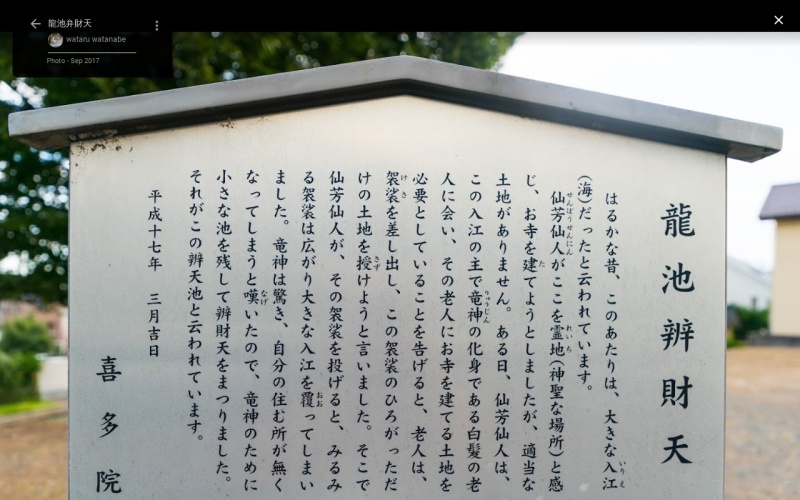 龍池弁財天
wataru watanabe
Photo - Sep 2017
龍池辨財天
はるかな昔、このあたりは、大きな入江
(海)だったと云われています。
仙芳仙人がここを霊地(神聖な場所)と感
じ、お寺を建てようとしましたが、適当な
土地がありません。ある日、仙芳仙人は、
この入江の主で竜神の化身である白髪の老
人に会い、その老人にお寺を建てる土地を
必要としていることを告げると、老人は、
袈裟を差し出し、この袈裟のひろがっただ
けの土地を授けようと言いました。そこで
仙芳仙人が、その袈裟を投げると、みるみ
る袈裟は広がり大きな入江を覆ってしまい
ました。竜神は驚き、自分の住む所が無く
なってしまうと嘆いたので、竜神のために
小さな池を残して辨財天をまつりました。
それがこの辨天池と云われています。
平成十七年 三月吉日
喜多院